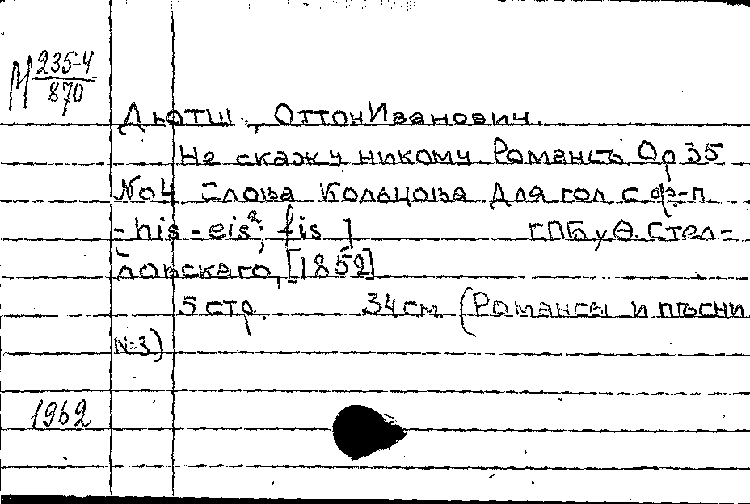 М 235-4
870
Дютш, Оттон Иванович.
Не скажу никому Романсъ Ор 35
№ 4 Слова Кольцова Для гол с ф-п
-his-eis²; fis ] СПБ у Ѳ. Стел-
ловскаго, [1852]
5 стр. 34 см (Романсы и пѣсни
№ 3)
1962